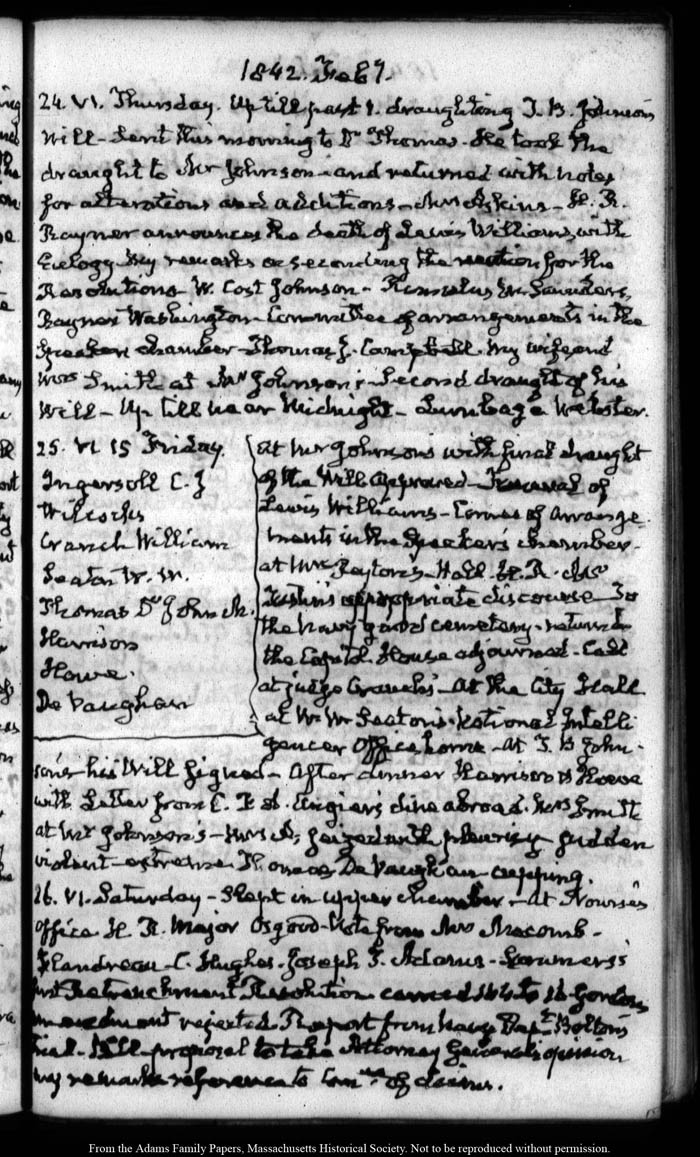 1842. Feby.
24. VI. Thursday. Up till past 1. draughting T. B. Johnson's
Will - Sent this morning to Dr Thomas - He took the
draught to Mr Johnson - and returned with notes
for alterations and additions - Mrs Askins - H. R.
Rayner announces the death of Lewis Williams, with
Eulogy. My remarks on seconding the motion for the
Resolutions - W. Cost Johnson - Romulus M. Saunders,
Rayner Washington - Committee of arrangements in the
Speaker's chamber - Thomas J. Campbell. My wife and
Mrs Smith at Mr Johnson's - Second draught of his
Will - Up till near Midnight - Webster.
25. VI 15 Friday.
Ingersoll C. J
Wilcocks
Cranch William
Seaton W. W.
Thomas Dr John M.
Harrison
Howe.
De Vaughan
at Mr Johnson's with final draught
of the Will approved - Funeral of
Lewis Williams - Comee of Arrange-
ments in the Speaker's chamber -
at Mrs Peyton's - Hall H. R. Mr
appropriate discourse - To
the navy yard cemetery - returned
the Capitol. House adjourned - Call
at judge Cranch's - At the City Hall
at W. W. Seaton's - National Intelli
gencer Office home - at T. B John-
son's his Will signed - After dinner Harrison & Howe
with Letter from C. F A. Angier's dine abroad. Mrs Smith
at Mr Johnson's - Mrs A. seized with pleurisy sudden
violent extreme Thomas De Vaughan cupping.
26. VI. Saturday - Slept in upper chamber - At Nourse's
Office H. R. Major Osgood - Note from Mrs Macomb -
Flandreau - C. Hughes - Joseph F. Adams - Summers's
Retrenchment Resolution carried to Gordon's
amendment rejected Report from Navy Dept Bolton's
proposal to take Attorney General's opinion
my remarks reference to Comee of claims.
From the Adams Family Papers, Massachusetts Historical Society. Not to be reproduced without permission.